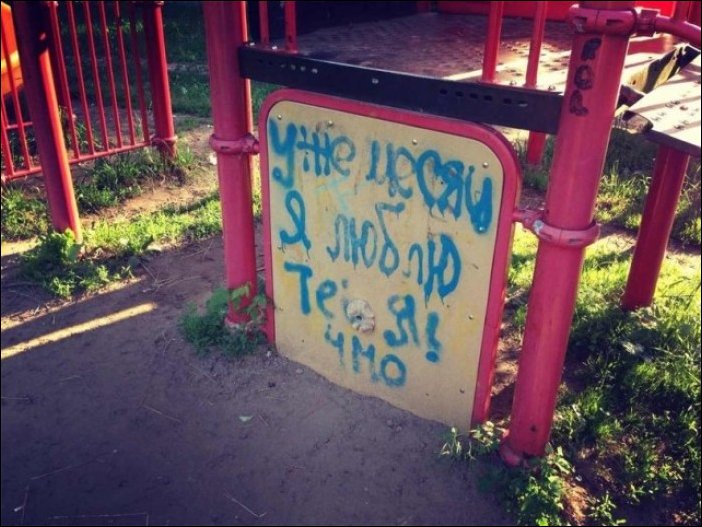 Уже месяц
Я люблю
Тебя!
чмо